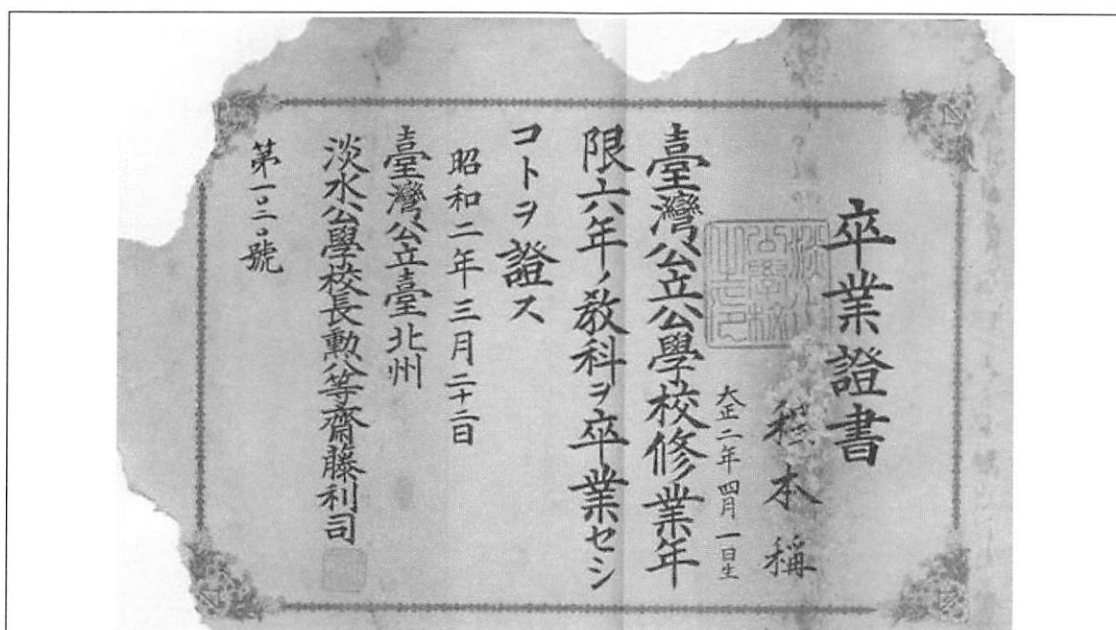 卒業證書
程本稱
大正二年四月一日生
臺灣公立公學校修業年
限六年ノ教科ヲ卒業セシ
コトヲ證ス
昭和二年三月二十二日
臺灣公立臺北州
淡水公學校長勳八等齋藤利司
第一〇二〇號
淡水
公學校
之印